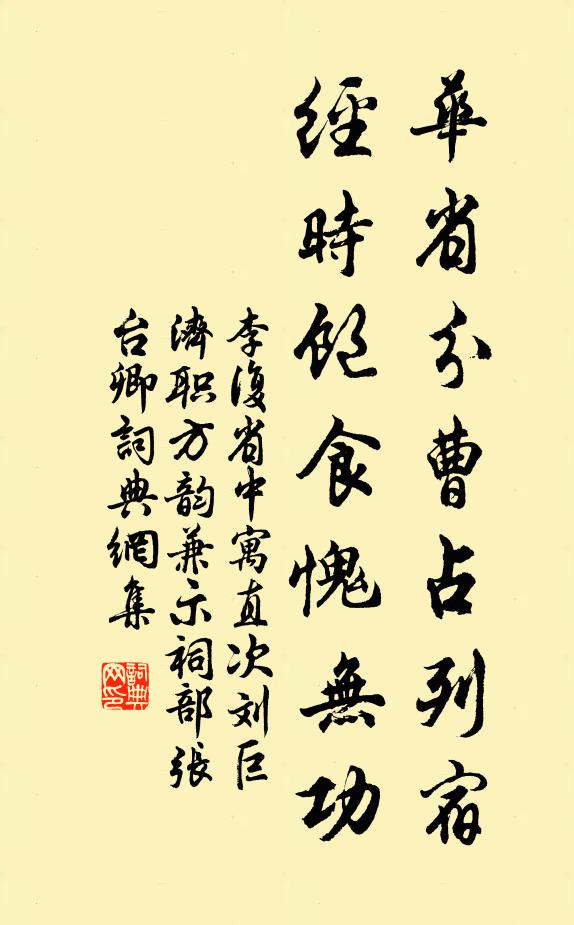 華省分曹占列宿
經時飽食愧無功
李復省中寓直次刘巨
濟职方韵兼示祠部張
台卿詞典網集
詞典
网印